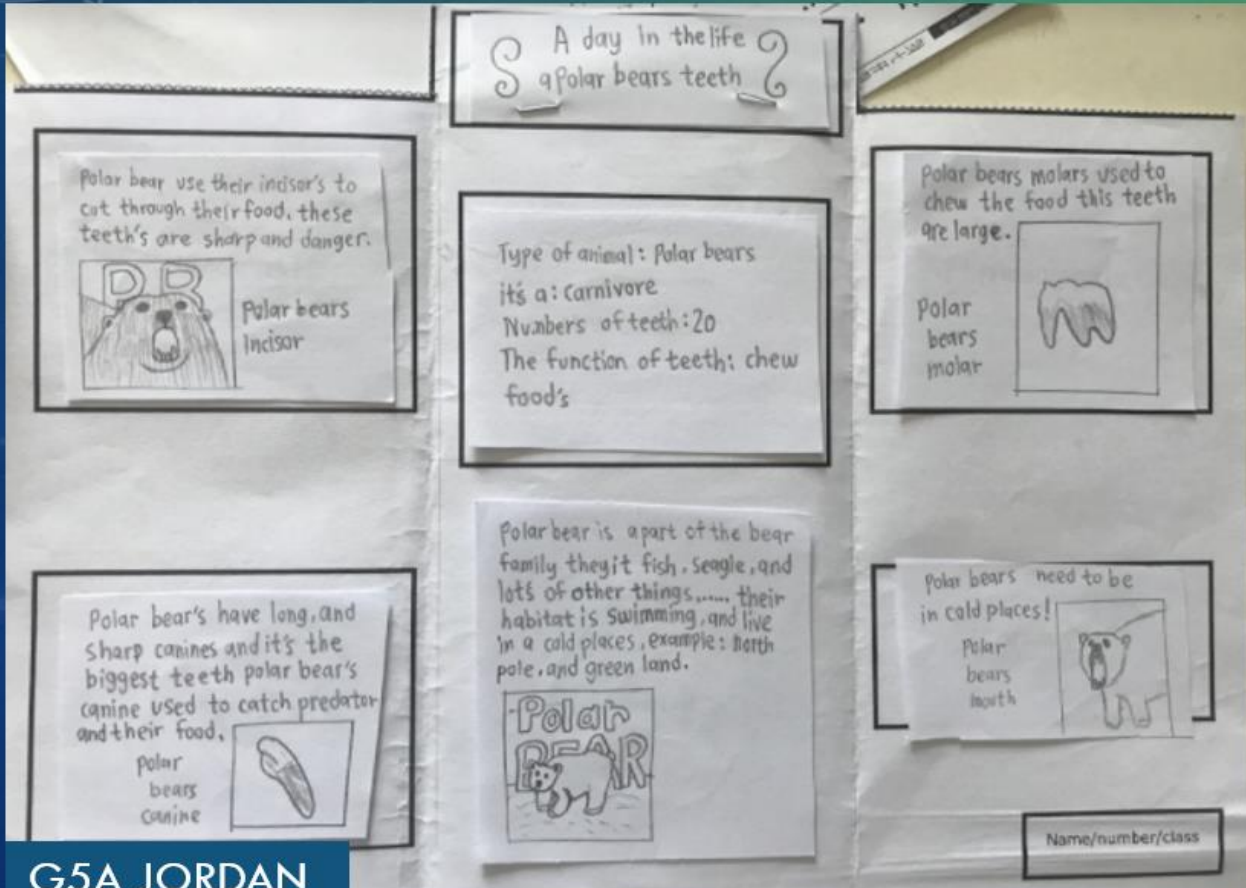 A day in the life
a Polar bears teeth
Polar bear use their incisor's to
cut through their food, these
teeth's are sharp and danger.
P B
Polar bears
Incisor
Polar bear's have long, and
sharp canines and it's the
biggest teeth polar bear's
canine used to catch predator
and their food.
Polar
bears
canine
Type of animal: Polar bears
it's a: Carnivore
Numbers of teeth: 20
The function of teeth: chew
food's
Polar bear is a part of the bear
family they it fish, seagle, and
lot's of other things,..... their
habitat is swimming, and live
in a cold places, example: North
pole, and green land.
Polar
BEAR
Polar bears molars used to
chew the food this teeth
are large.
Polar
bears
molar
Polar bears need to be
in cold places!
Polar
bears
mouth
Name/number/class
G5A JORDAN